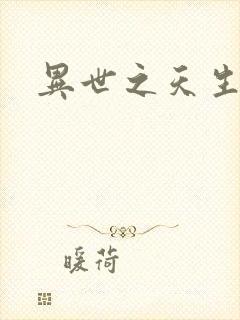 異世之天生
暖荷